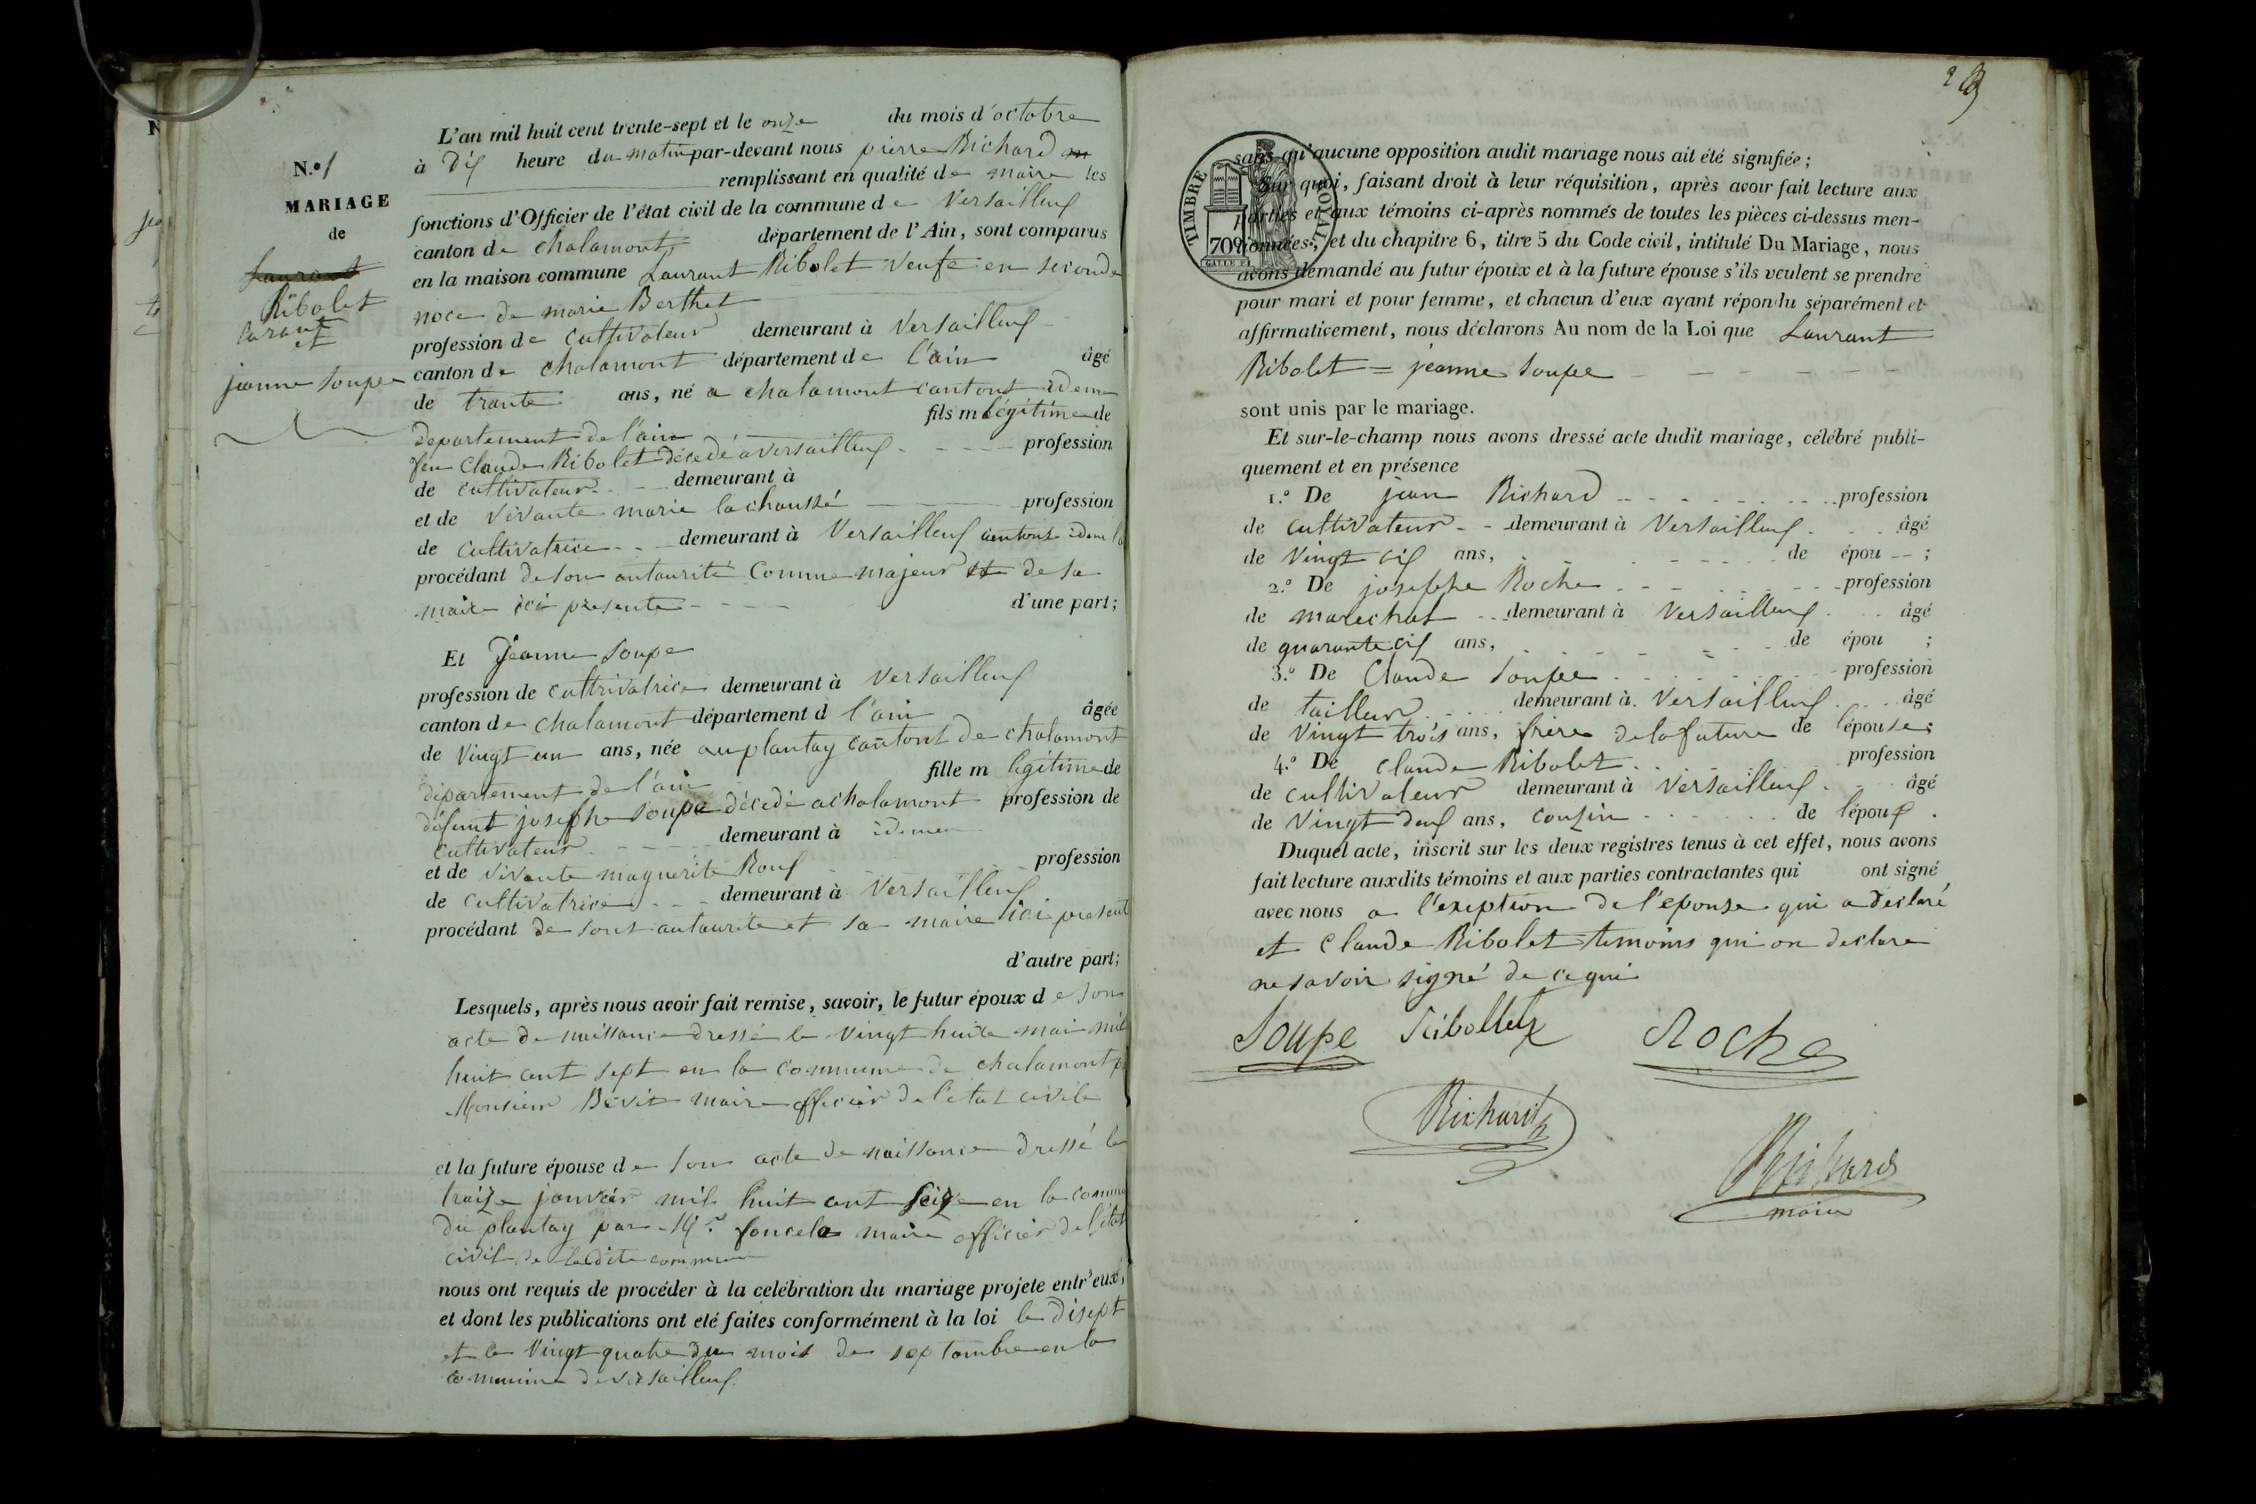 N.º 1
MARIAGE
de
Laurant
Ribolet
larant
et
jeanne Soupe
L'an mil huit cent trente-sept et le onze du mois d'octobre
à Dix heure du matin par-devant nous pierre Richard
remplissant en qualité de maire les
fonctions d'Officier de l'état civil de la commune de Versailleux
canton de chalamont département de l'Ain, sont comparus
en la maison commune Laurant Ribolet veufe en seconde
noce de marie Berthet
profession de Cultivateur demeurant à Versailleux
canton de chalamont département de l'ain âgé
de trante ans, né a chalamont cantont idem
departement de l'ain fils m légitime de
feu Claude Ribolet décedé a versailleux profession
de cultivateur demeurant à
et de vivante marie lachaussé profession
de cultivatrice demeurant à Versailleux cantont idem
procédant de son autaurité Comme majeur et de sa
maire ici presente d'une part;
Et Jeanne Soupe
profession de cultrivatrice demeurant à Versailleux
canton de chalamont département d l'ain âgée
de vingt un ans, née au plantay cantont de chalamont
département de l'ain fille m legitime de
défunt josephe Soupe décedé a chalamont profession de
cultivateur demeurant à idemen
et de vivante maguerite Roux profession
de cultivatrice demeurant à Versailleux
procédant de sont autaurite et sa maire ici present
d'autre part;
Lesquels, après nous avoir fait remise, savoir, le futur époux de son
acte de naissance dressé le vingt huite mai mil
huit cent sept en la commune de chalamont
Monsieur maire officier de l'état civile
et la future épouse de son acte de naissance dressé le
traize janvier mil huit cent seize en la commune
du plantay par Mr. foncela maire officier de l'état
civil de ladite commune
nous ont requis de procéder à la célébration du mariage projete entr'eux,
et dont les publications ont été faites conformément à la loi le disept
et le vingt quatre du mois de septambre en la
commune de versailleux.
sans qu'aucune opposition audit mariage nous ait été signifiée;
Sur quoi, faisant droit à leur réquisition, après avoir fait lecture aux
parties et aux témoins ci-après nommés de toutes les pièces ci-dessus men-
tionnées, et du chapitre 6, titre 5 du Code civil, intitulé Du Mariage, nous
avons demandé au futur époux et à la future épouse s'ils veulent se prendre
pour mari et pour femme, et chacun d'eux ayant répondu séparément et
affirmativement, nous déclarons Au nom de la Loi que Laurant
Ribolet = jeanne Soupe
sont unis par le mariage.
Et sur-le-champ nous avons dressé acte dudit mariage, célébré publi-
quement et en présence
1.º De jean Richard profession
de cultivateur demeurant à Versailleux âgé
de vingt cix ans, de épou ;
2.º De josephe Roche profession
de marechal demeurant à Versailleux âgé
de quarante cix ans, de épou ;
3.º De Claude Soupe profession
de tailleur demeurant à Versailleux âgé
de vingt trois ans, frère de la future de lépouse;
4.º De Claude Ribolet profession
de cultivateur demeurant à Versailleux âgé
de vingt deux ans, couzin de lépoux.
Duquel acte, inscrit sur les deux registres tenus à cet effet, nous avons
fait lecture auxdits témoins et aux parties contractantes qui ont signé
avec nous a l'exeption de l'épouse qui a declaré
et Claude Ribolet temoins qui on declare
ne savoir signé de ce qui
Soupe Ribollet Roche
Richard
Richard
maire
TIMBRE ROYAL
70c